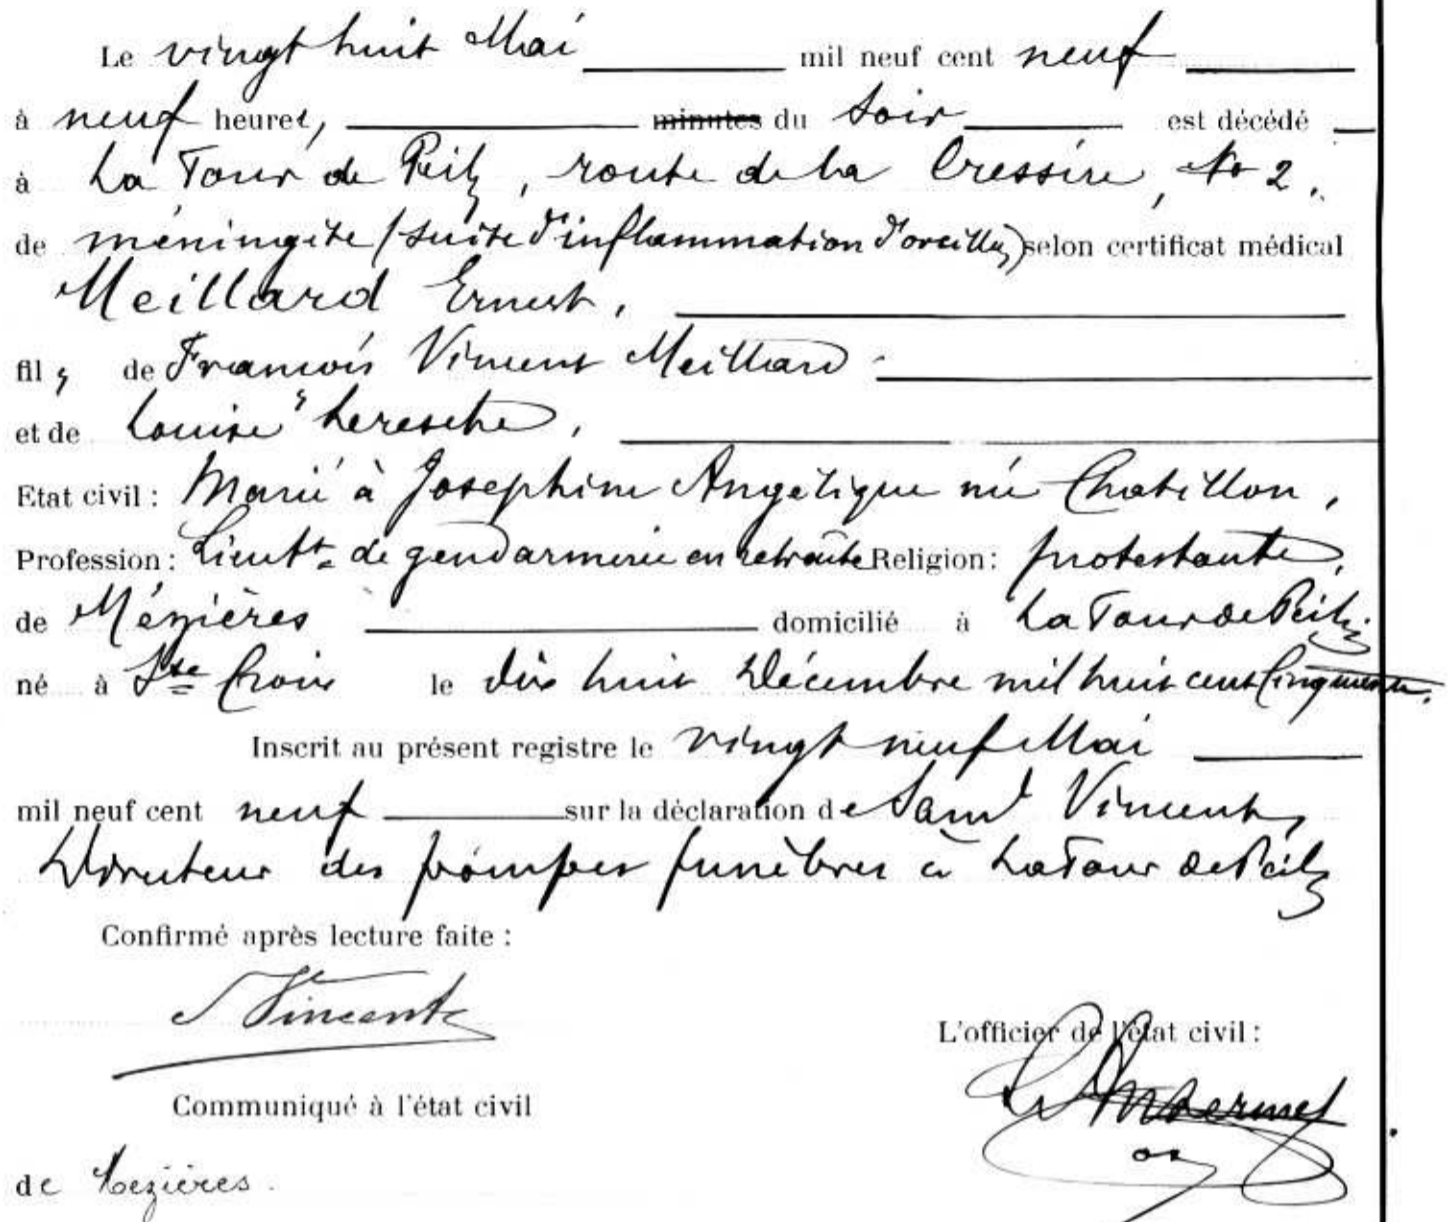 Le vingt huit Mai mil neuf cent neuf
à neuf heures, minutes du soir est décédé
à La Tour de Peilz, route de la Cressire, No 2,
de méningite (suite d'inflammation d'oreilles) selon certificat médical
Meillard Ernest,
fils de François Vincent Meillard
et de Louise Leresche,
Etat civil : Marié à Josephine Angélique née Chatillon,
Profession : Lieutt de gendarmerie en retraite Religion : protestante,
de Mézières domicilié à La Tour de Peilz
né à Ste Croix le dix huit Décembre mil huit cent cinquante.
Inscrit au présent registre le vingt neuf Mai
mil neuf cent neuf sur la déclaration de Saml Vincent,
Directeur des pompes funèbres à La Tour de Peilz
Confirmé après lecture faite :
S Vincent
L'officier de l'état civil :
Communiqué à l'état civil
de Mezières.